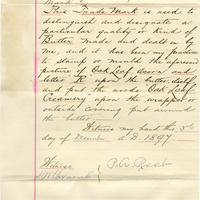 This Trade Mark is used to
distinguish and designate a
particular quality or kind of
Butter made and dealt in by
me, and it has been my
to stamp or mould the aforesaid
picture of Oak Leaf Acorn and
letter R upon the butter itself
and put the words Oak Leaf
Creamery upon the wrapper or
outside covering put around
the butter.
Witness my hand this 3rd
day of December A.D. 1877
Witness
P.A.